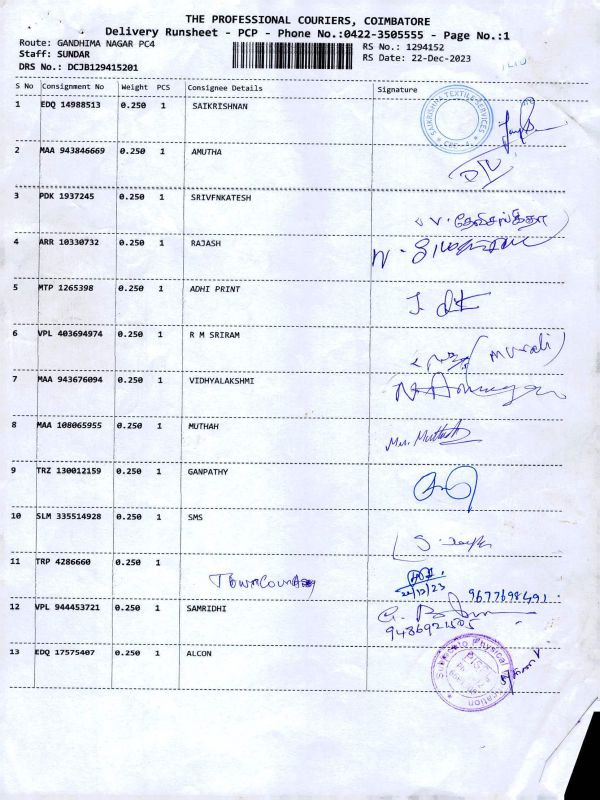 THE PROFESSIONAL COURIERS, COIMBATORE
Delivery Runsheet - PCP - Phone No.:0422-3505555 - Page No.:1
Route: GANDHIMA NAGAR PC4
RS No.: 1294152
Staff: SUNDAR
RS Date: 22-Dec-2023
DRS No.: DCJB129415201
S No Consignment No Weight PCS Consignee Details Signature
1 EDQ 14988513 0.250 1 SAIKRISHNAN
SAIKRISHNA TEXTILE SERVICES
2 MAA 943846669 0.250 1 AMUTHA
3 PDK 1937245 0.250 1 SRIVFNKATESH
4 ARR 10330732 0.250 1 RAJASH
5 MTP 1265398 0.250 1 ADHI PRINT
6 VPL 403694974 0.250 1 R M SRIRAM
(Murali)
7 MAA 943676094 0.250 1 VIDHYALAKSHMI
8 MAA 108065955 0.250 1 MUTHAH
9 TRZ 130012159 0.250 1 GANPATHY
10 SLM 335514928 0.250 1 SMS
11 TRP 4286660 0.250 1
22/12/23 9677698491
12 VPL 944453721 0.250 1 SAMRIDHI
9486921505
13 EDQ 17575407 0.250 1 ALCON
Subject to Physical